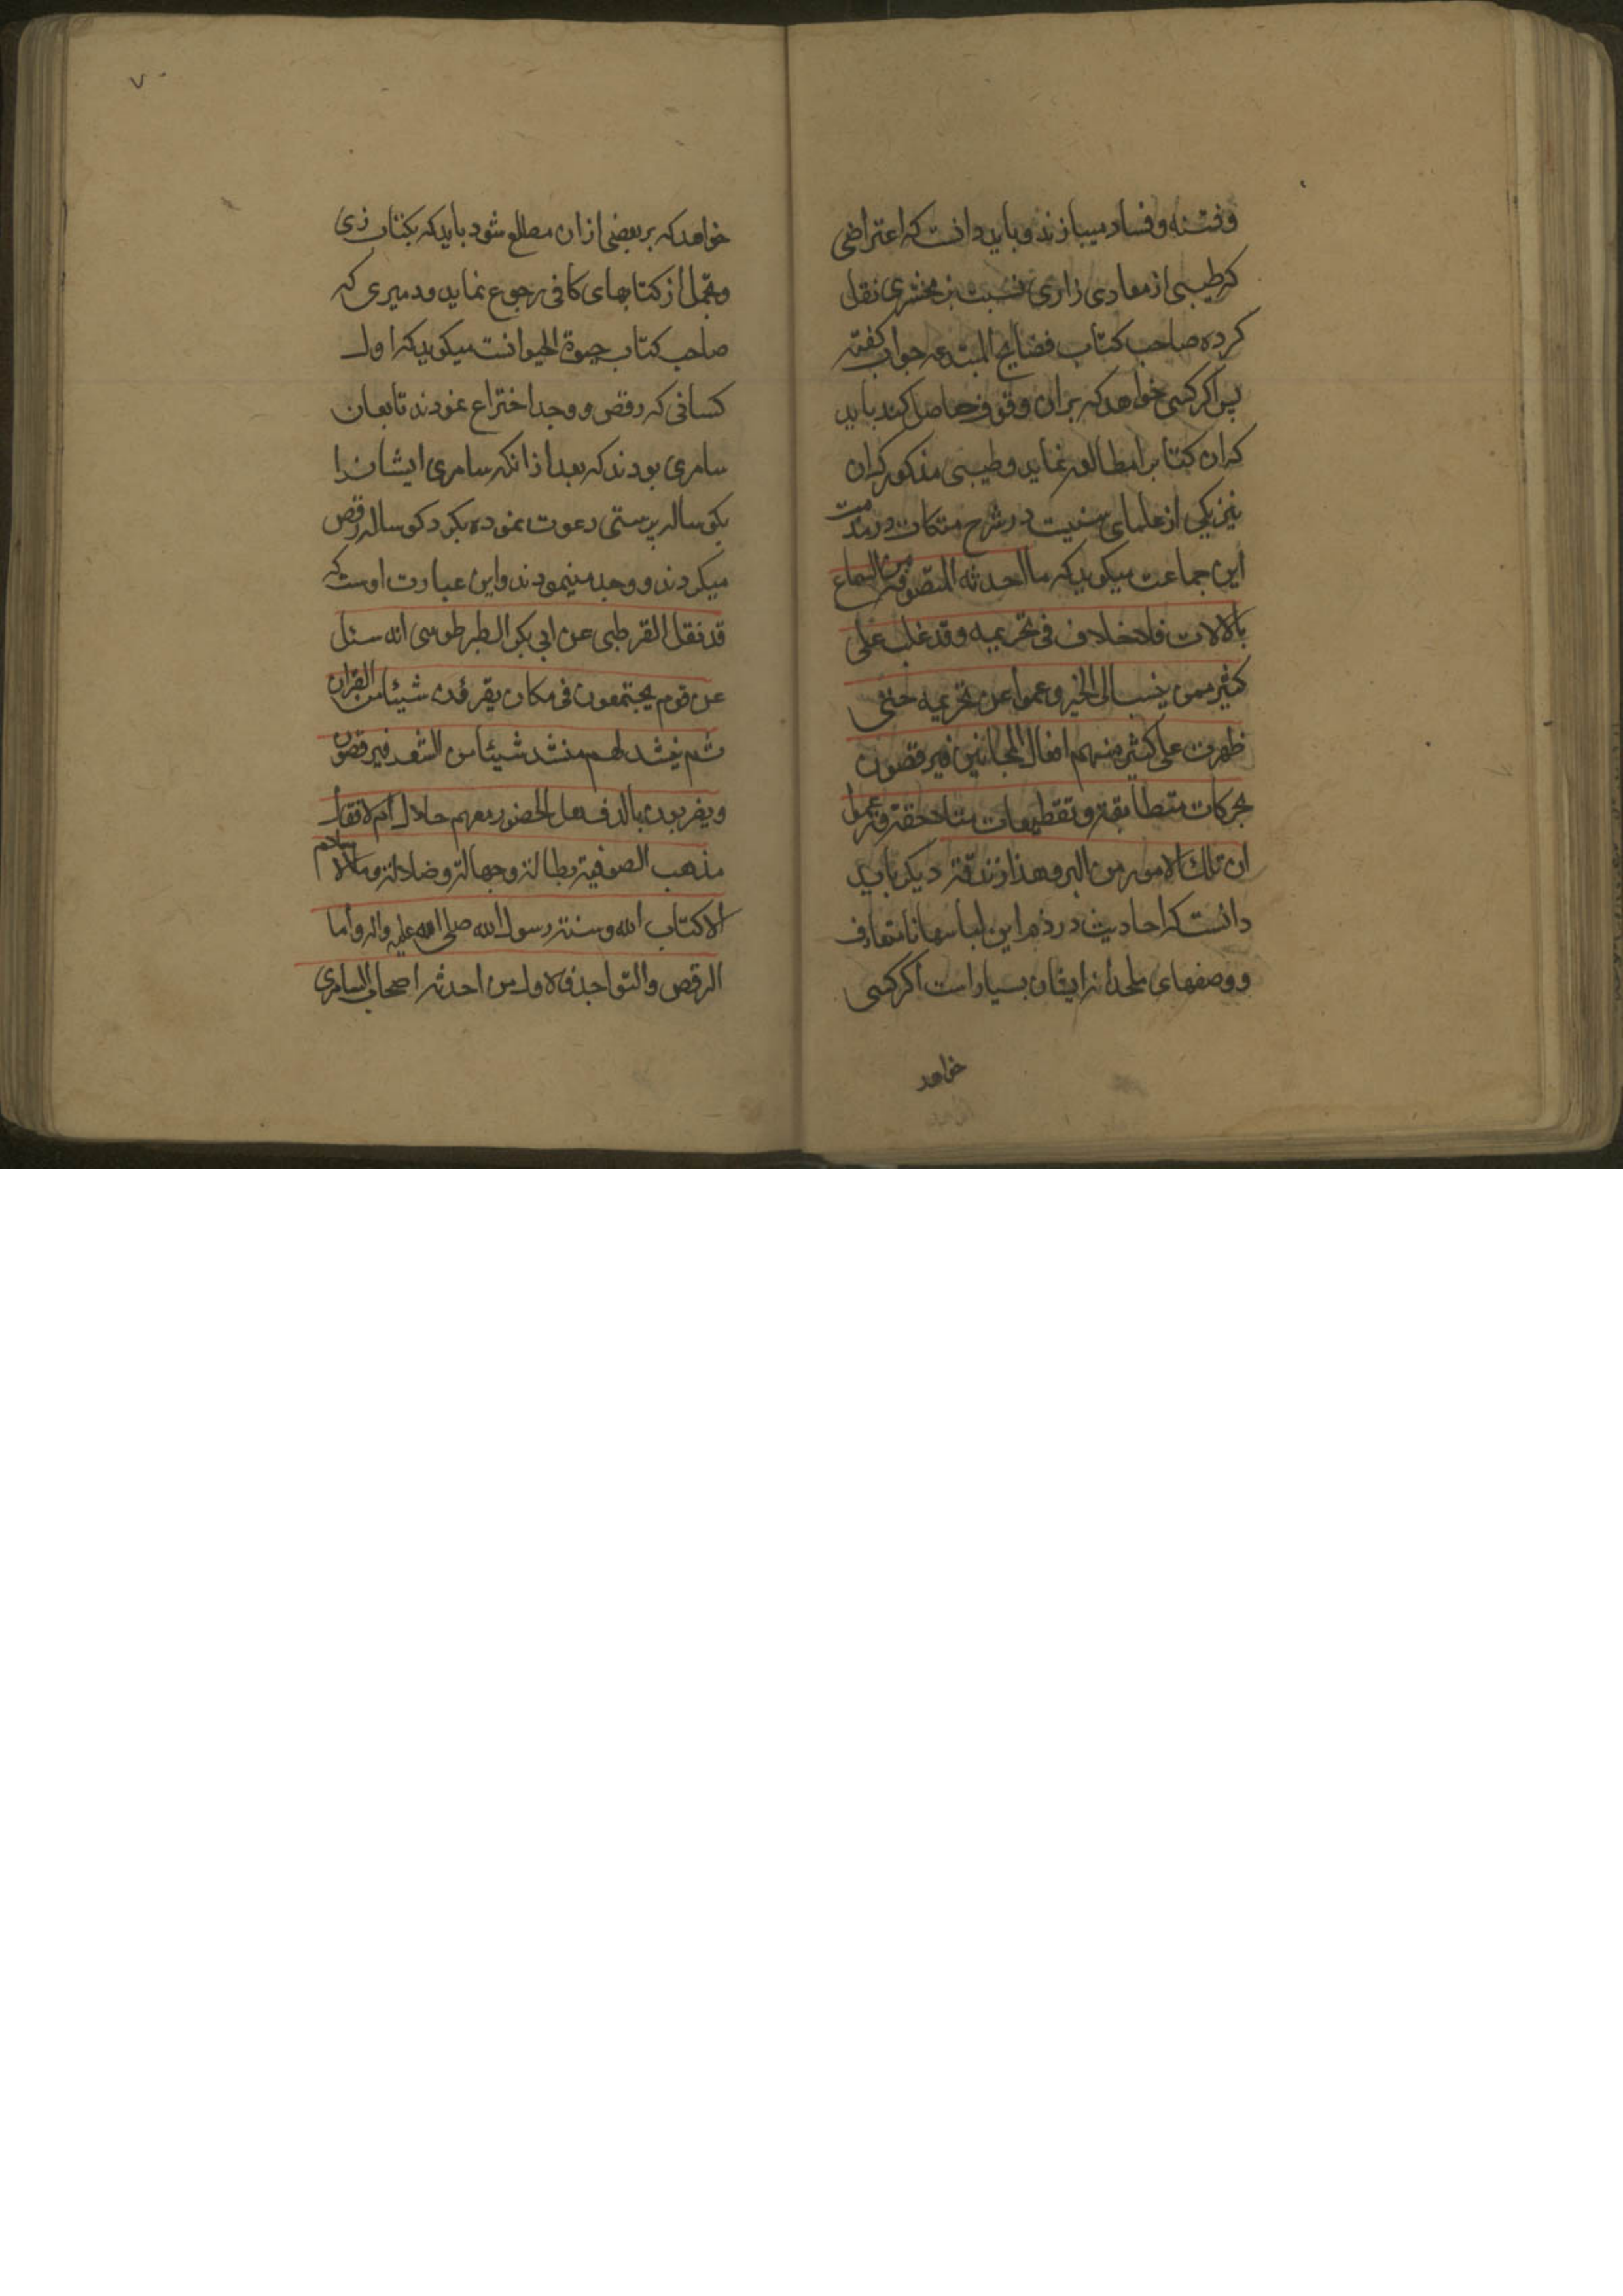 و فتنه و فساد میبازند و باید دانست که اعتراضی
که طیبی از معادی زاری نسبت بزمخشری نقل
کرده صاحب کتاب فضایح المبتدعه جواب گفته
پس اگر کسی خواهد که بران وقوف حاصل کند باید
که ان کتابرا مطالعه نماید و طیبی مذکور که ان
نیز یکی از علمای سنیت در شرح مشکات در مذمت
این جماعت میکوید که ما احدثه المتصوفة من السماع
بالالات فلا خلاف فی تحریمه و قد غلب علی
کثیر ممن ینسب الی الخیر و عموا عن تحریمه حتی
ظهرت علی کثیر منهم افعال المجانین فیرقصون
بحرکات متطابقة و تقطیعات متلاحقة و زعموا
ان تلک الامور من البر و هذا زندقة دیکر باید
دانست که احادیث در ذم این لباسها نامتعارف
و وصفهای ملحدانه ایشان بسیار است اکر کسی
خواهد
۷۰
خواهد که بر بعضی ازان مطلع شود باید که بکتاب زی
و تجمل از کتابهای کافی رجوع نماید و دمیری که
صاحب کتاب حیوة الحیوانست میکوید که اول
کسانی که رقص و وجد اختراع نمودند تابعان
سامری بودند که بعد از انکه سامری ایشانرا
بکوساله پرستی دعوت نموده بکرد کوساله رقص
میکردند و وجد مینمودند و این عبارت اوست که
قد نقل القرطبی عن ابی بکر الطرطوسی انه سئل
عن قوم یجتمعون فی مکان یقرؤن شیئا من القران
ثم ینشد لهم منشد شیئا من الشعر فیرقصون
و یضربون بالدف هل الحضور معهم حلال ام لا فقال
مذهب الصوفیة بطالة و جهالة و ضلالة و ما الاسلام
الا کتاب الله و سنة رسول الله صلی الله علیه واله و أما
الرقص و التواجد فالاول من احدثه اصحاب السامری